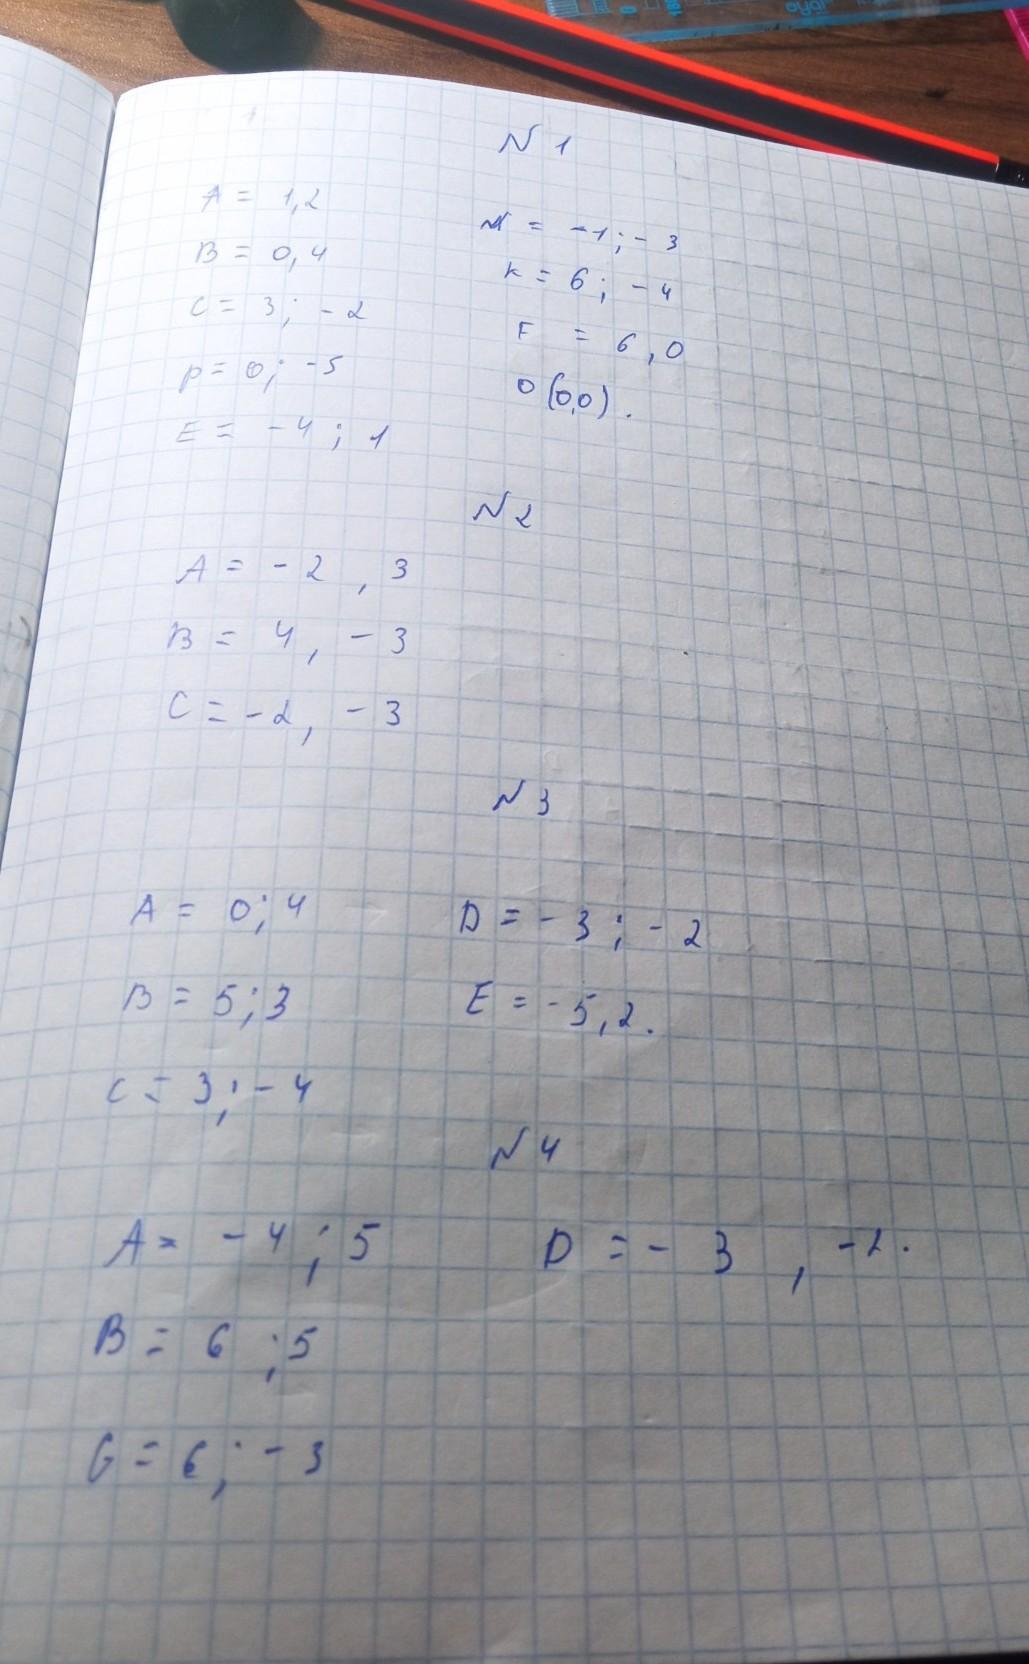 N 1
A = 1,2
B = 0,4
C = 3; -2
p = 0; -5
E = -4; 1
M = -1; -3
K = 6; -4
F = 6,0
0 (0,0).
N 2
A = -2 , 3
B = 4, -3
C = -2, -3
N 3
A = 0; 4
B = 5; 3
C = 3; -4
D = -3; -2
E = -5,2.
N 4
A = -4; 5
B = 6 ; 5
G = 6; -3
D = -3 , -2.